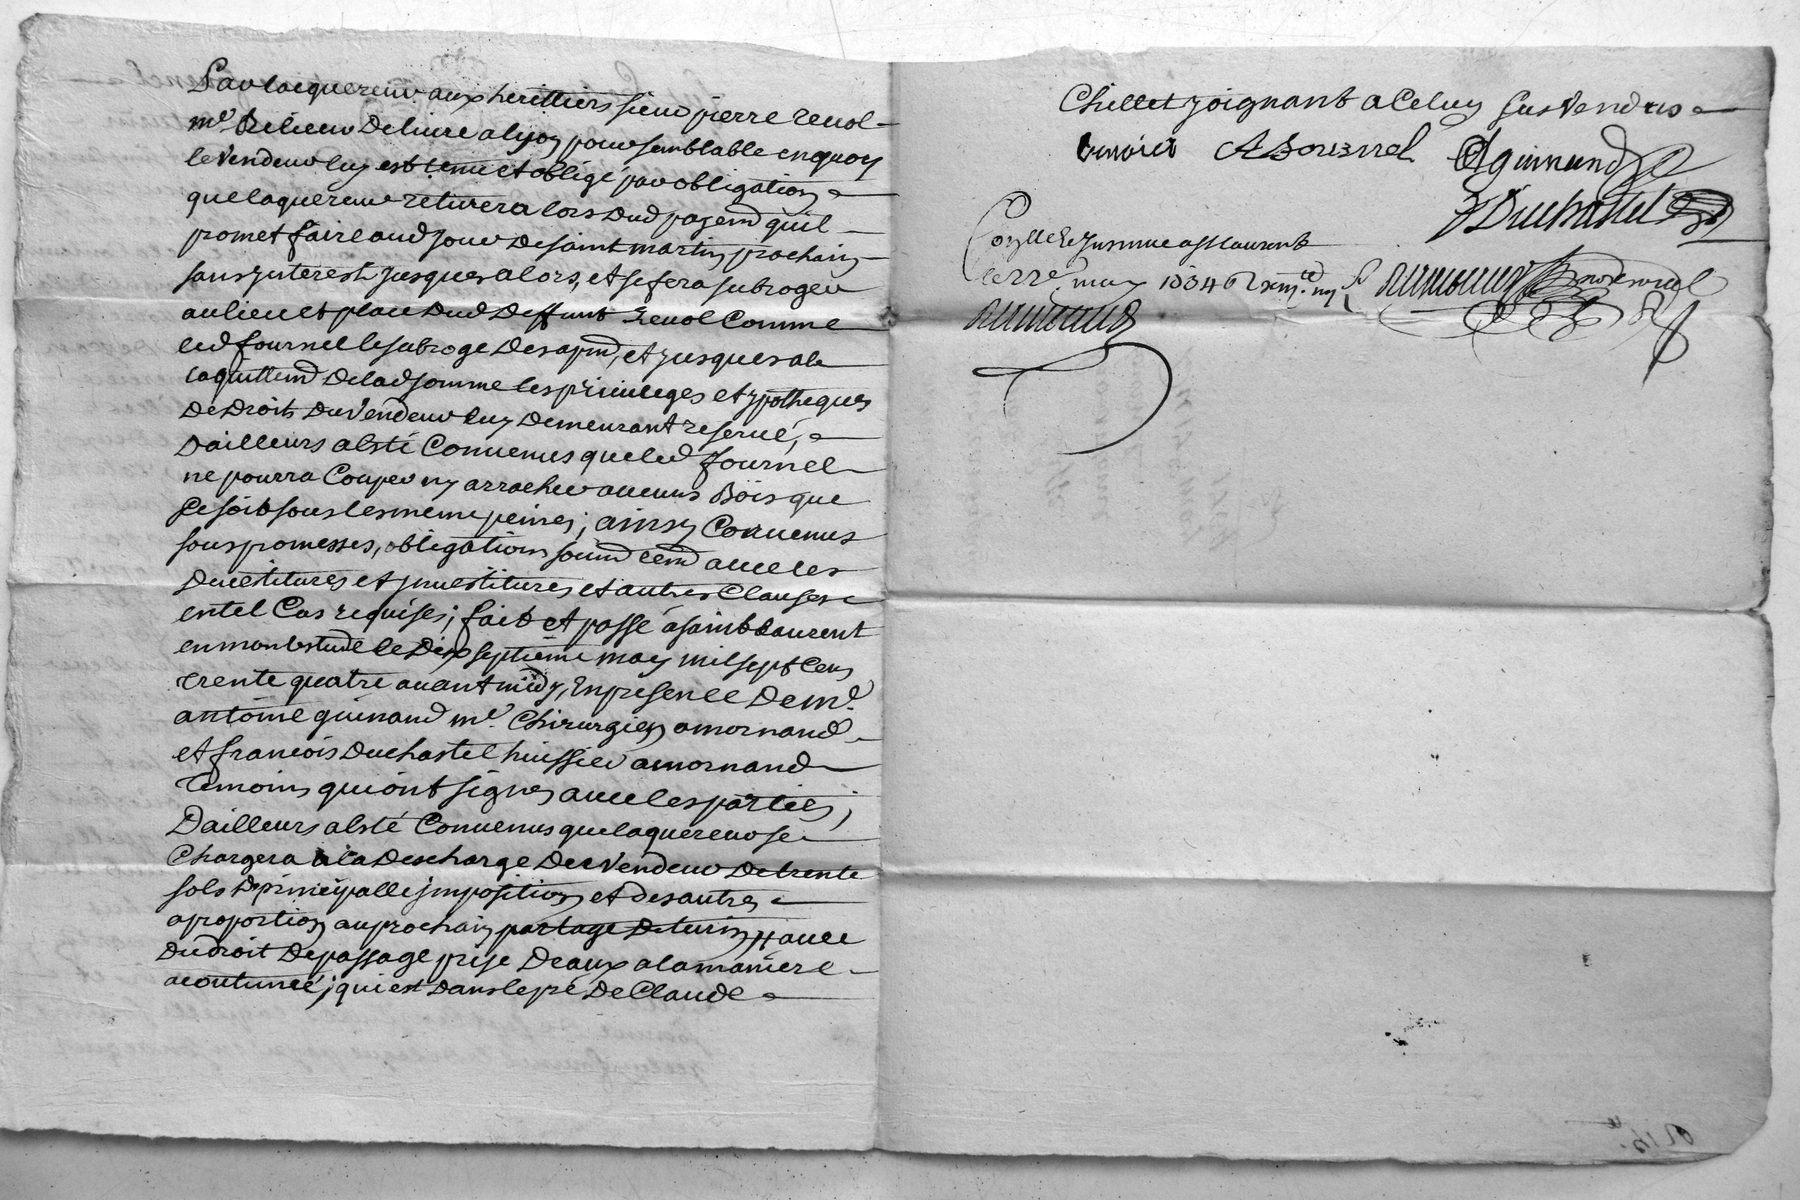 par lacquereur aux heritiers sieur pierre revol
me Relieur de livre a lyon pour semblable en quoy
le vendeur luy est tenu et obligé par obligation
que laquereur retirera lors dud payemt quil
promet faire aud jour de saint martin prochain
sans jnterest jusques alors, et se fera subroger
au lieu et place dud deffunt Revol comme
led fournel le subroge des apnt, et jusques a le
laquittemt de lad somme les privileges et ypotheques
de droits du vendeur luy demeurant reservé,
dailleurs a lesté Convenus que led fournel
ne pourra Couper ny arracher aucuns Bois que
se soit sous les meme peines; ainsy Convenus
sous promesses, obligations avec les
devestitures et jnvestitures et autres Clauses
en tel Cas requises; fait et passé a saint Laurent
en mon estude le dix septieme may mil sept Cens
trente quatre avant midy, En presence de mr
antoine guinand me Chirurgien a mornand
et francois duchastel huissier a mornand
temoins qui ont signes avec les parties;
Dailleurs a lesté Convenus que laquereur se
Chargera a la descharge des vendeur de trente
sols de principalle jmposition et des autres
a proportion au prochain partage avec
du droit de passage prise deaux a la maniere
acoutumée; qui est dans le pré de Claude
Chillet joignant a Celuy sus vendus
benoict AFournel AGuinand
FDuchastel
Corollé jnsinué a St Laurent
le may 1734